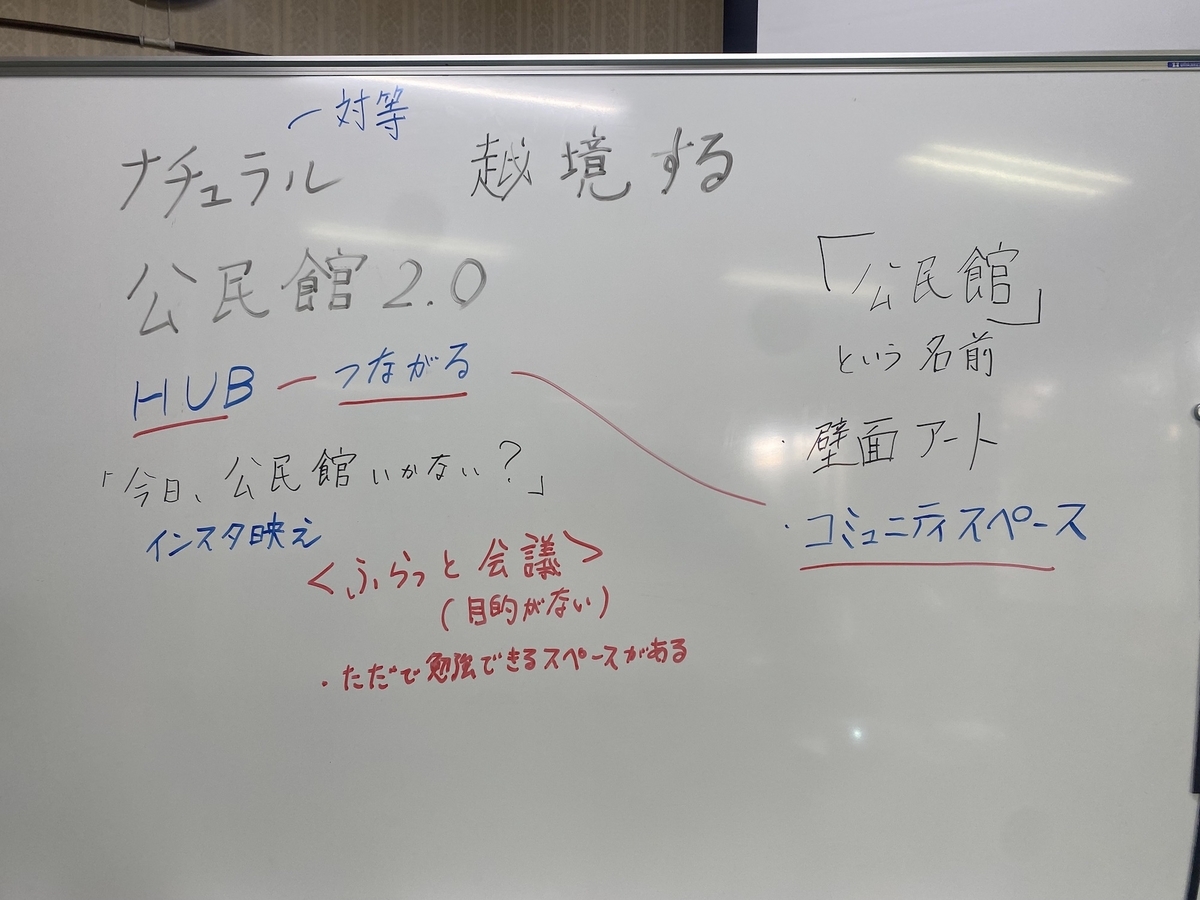 対等
ナチュラル 越境する
公民館2.0
HUB ー つながる
「今日、公民館いかない？」
インスタ映え
＜ふらっと会議＞
（目的がない）
・ただで勉強できるスペースがある
「公民館」
という名前
・壁面アート
・コミュニティスペース